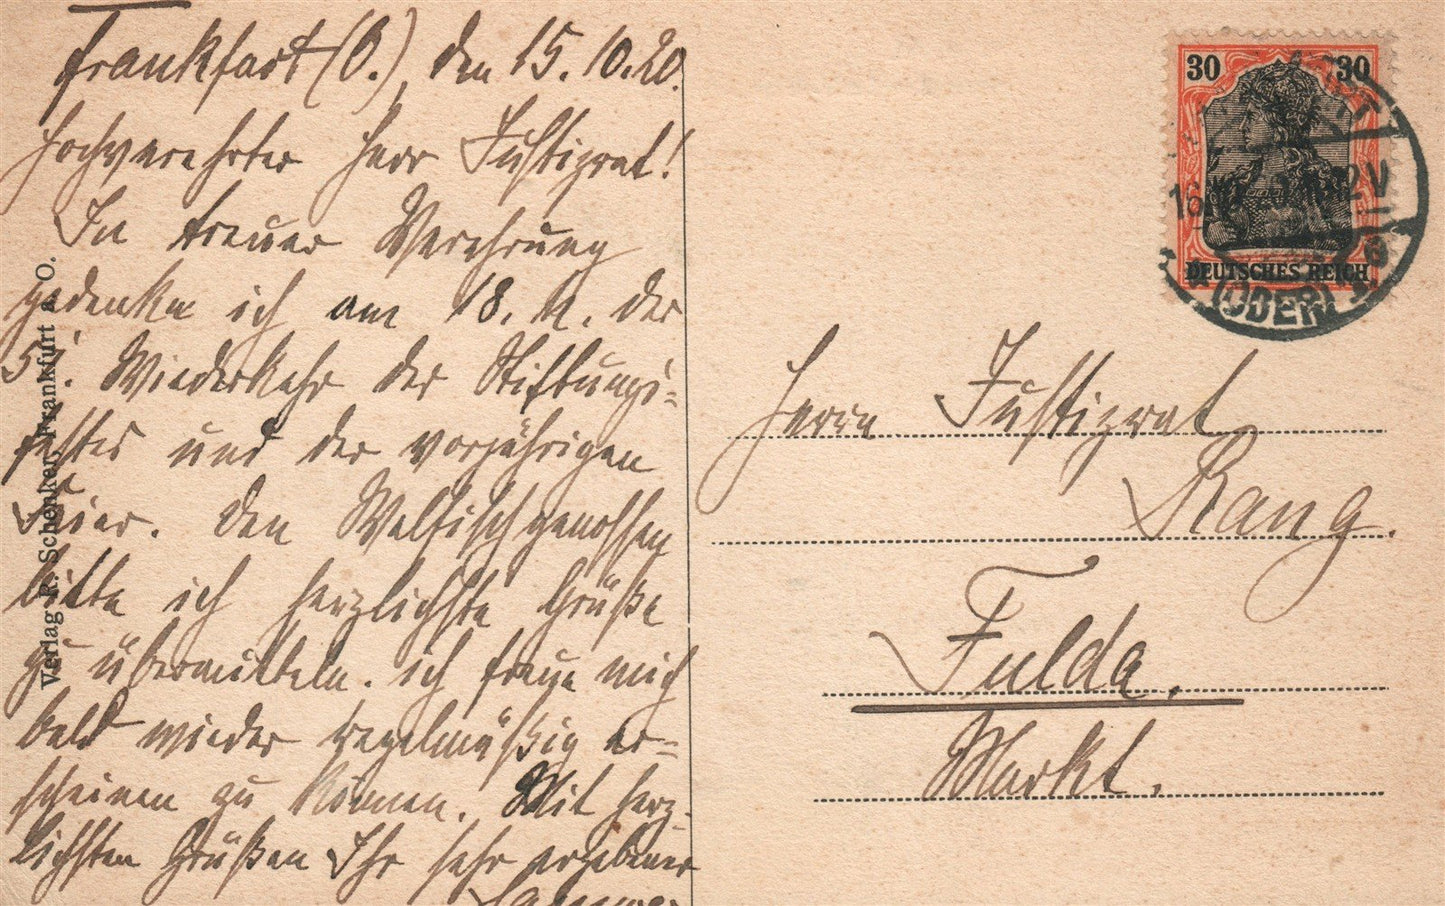 Frankfurt (O.), den 15.10.20.
Hochverehrter Herr Justizrat!
In treuer Verehrung
gedenke ich am 18. M. der
Wiederkehr der Stiftungs-
festes und der vorjährigen
Feier. Den Weltischgenossen
bitte ich herzlichste Grüße
zu übermitteln. Ich freue mich
bald wieder regelmäßig er-
scheinen zu können. Mit herz-
lichsten Grüßen Ihr sehr ergebener
Verlag R. Schenker, Frankfurt a. O.
30 30
DEUTSCHES REICH
(ODER)
Herrn Justizrat
Rang.
Fulda.
Markt.